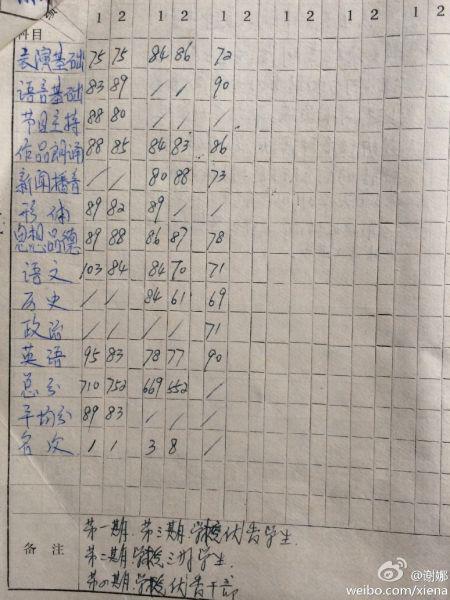 科目 1 2 1 2 1 2 1 2 1 2 1 2
表演基础 75 75 84 86 72
语言基础 83 89 / / 90
节目主持 88 80
作品朗诵 88 85 84 83 86
新闻播音 / / 80 88 73
形体 89 82 89 / /
思想品德 89 88 86 87 78
语文 103 84 84 70 71
历史 / / 84 61 69
政治 / / / / 71
英语 95 83 78 77 90
总分 710 752 669 552 /
平均分 89 83 / / /
名次 1 1 3 8 /
备注
第一期.第三期.学校优告学生.
第二期学校三好学生.
第四期.学校优告干部
@谢娜
weibo.com/xiena